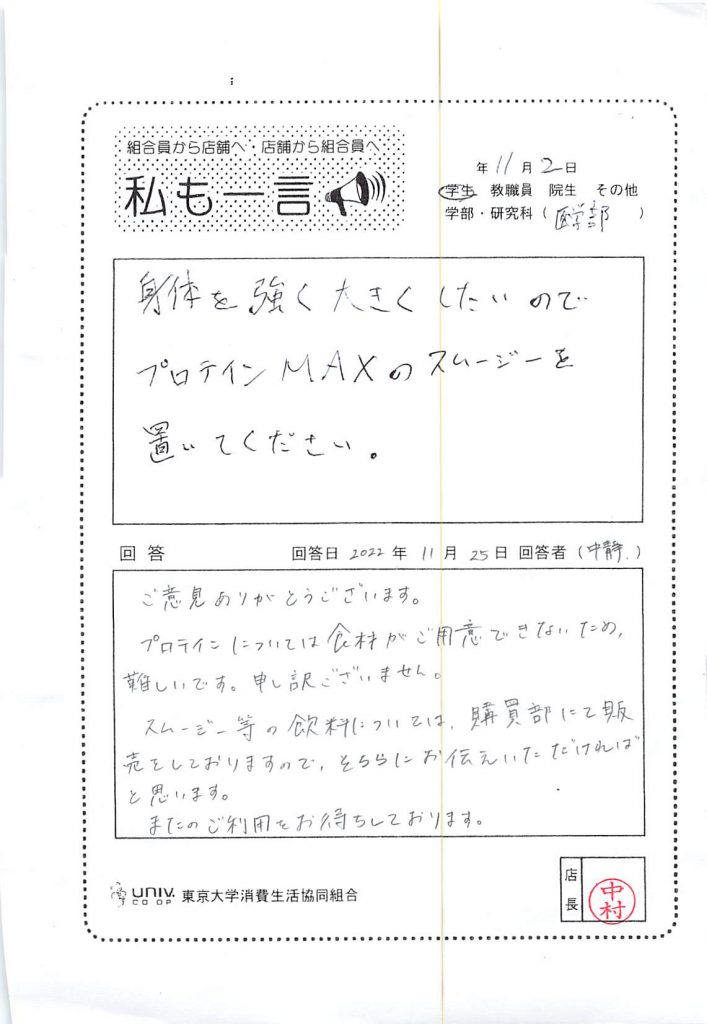 組合員から店舗へ・店舗から組合員へ
私も一言
年 11 月 2 日
学生 教職員 院生 その他
学部・研究科 ( 医学部 )
身体を強く大きくしたいので
プロテインMAXのスムージーを
置いてください。
回答 回答日 2022 年 11 月 25 日 回答者 (中静.)
ご意見ありがとうございます。
プロテインについては食材がご用意できないため、
難しいです。申し訳ございません。
スムージー等の飲料については、購買部にて販
売をしておりますので、そちらにお伝えいただければ
と思います。
またのご利用をお待ちしております。
UNIV.
CO OP
東京大学消費生活協同組合
店長
中村